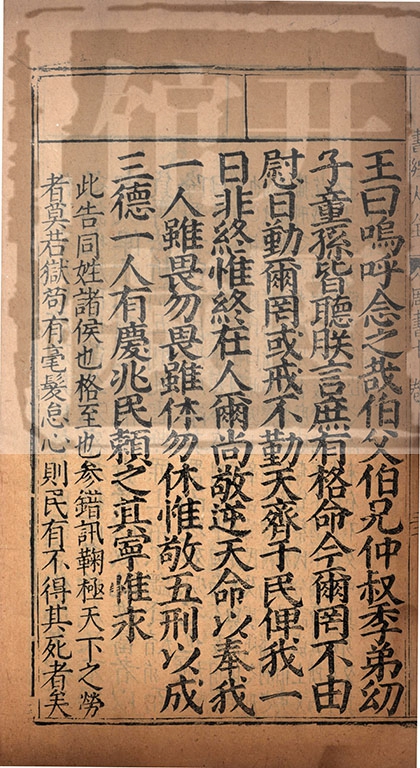 王曰嗚呼念之哉伯父伯兄仲叔季弟幼
子童孫皆聽朕言庶有格命今爾罔不由
慰日勤爾罔或戒不勤天齊于民俾我一
日非終惟終在人爾尚敬逆天命以奉我
一人雖畏勿畏雖休勿休惟敬五刑以成
三德一人有慶兆民賴之其寧惟永
此告同姓諸侯也格至也參錯訊鞠極天下之勞
者莫若獄苟有毫髮怠心則民有不得其死者矣